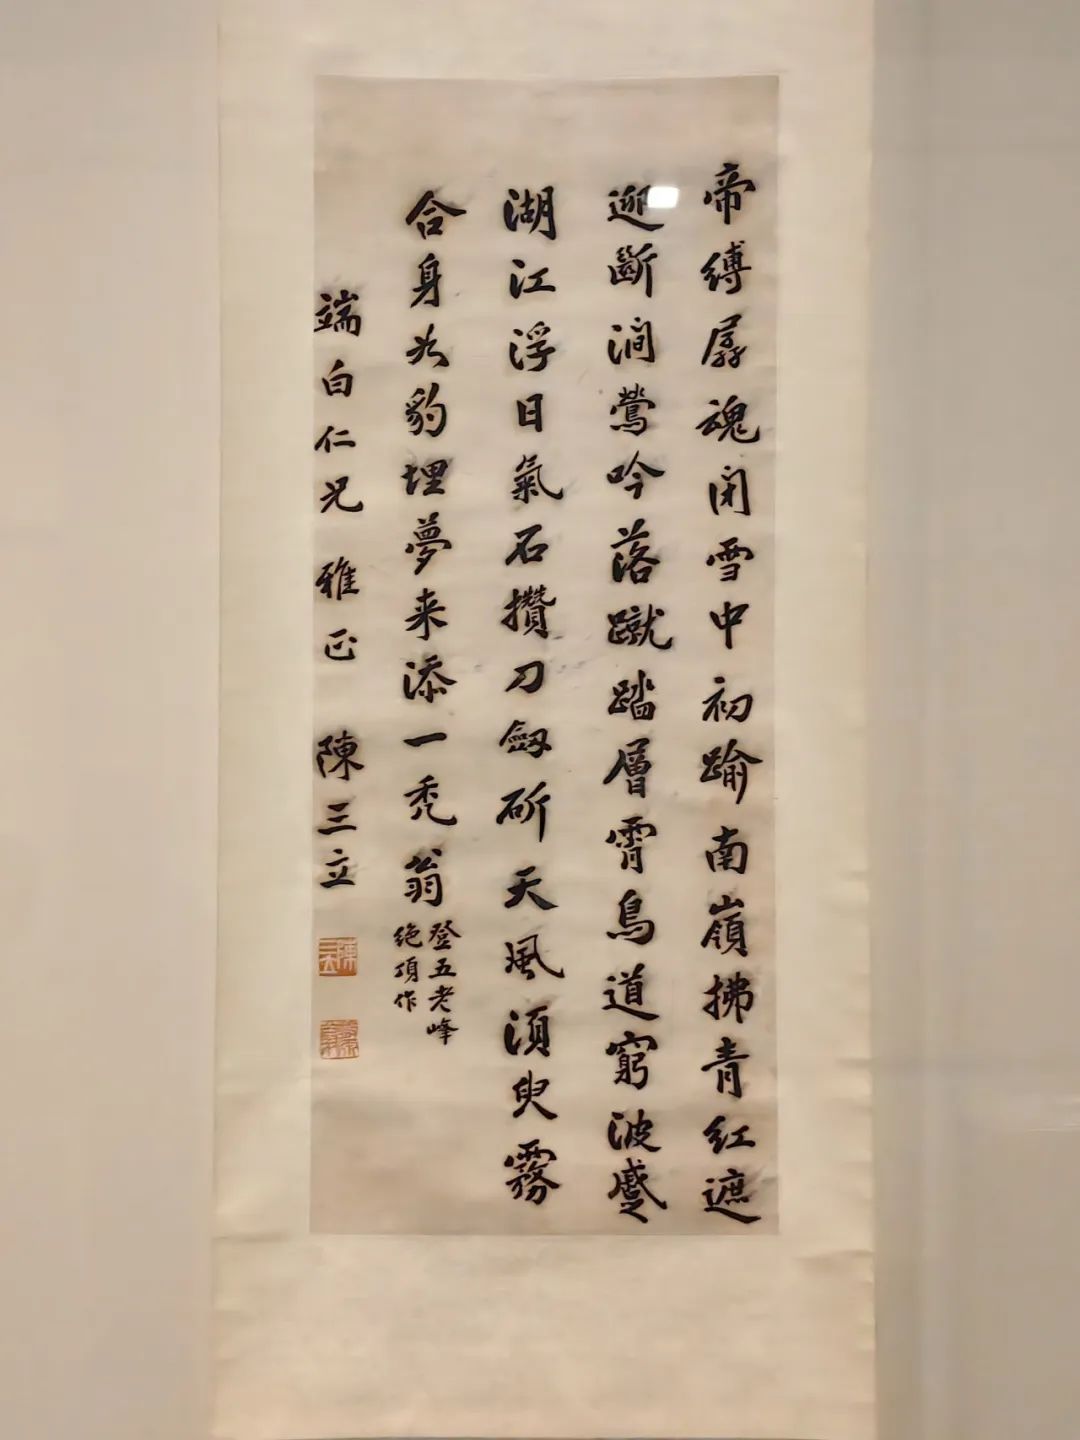 帝縛孱魂閉雪中初踰南嶺拂青紅遮
迎斷澗鶯吟落蹴踏層霄鳥道窮波蹙
湖江浮日氣石攢刀劔斫天風須臾霧
合身如豹埋夢来添一禿翁
登五老峰
絶頂作
端白仁兄雅正陳三立